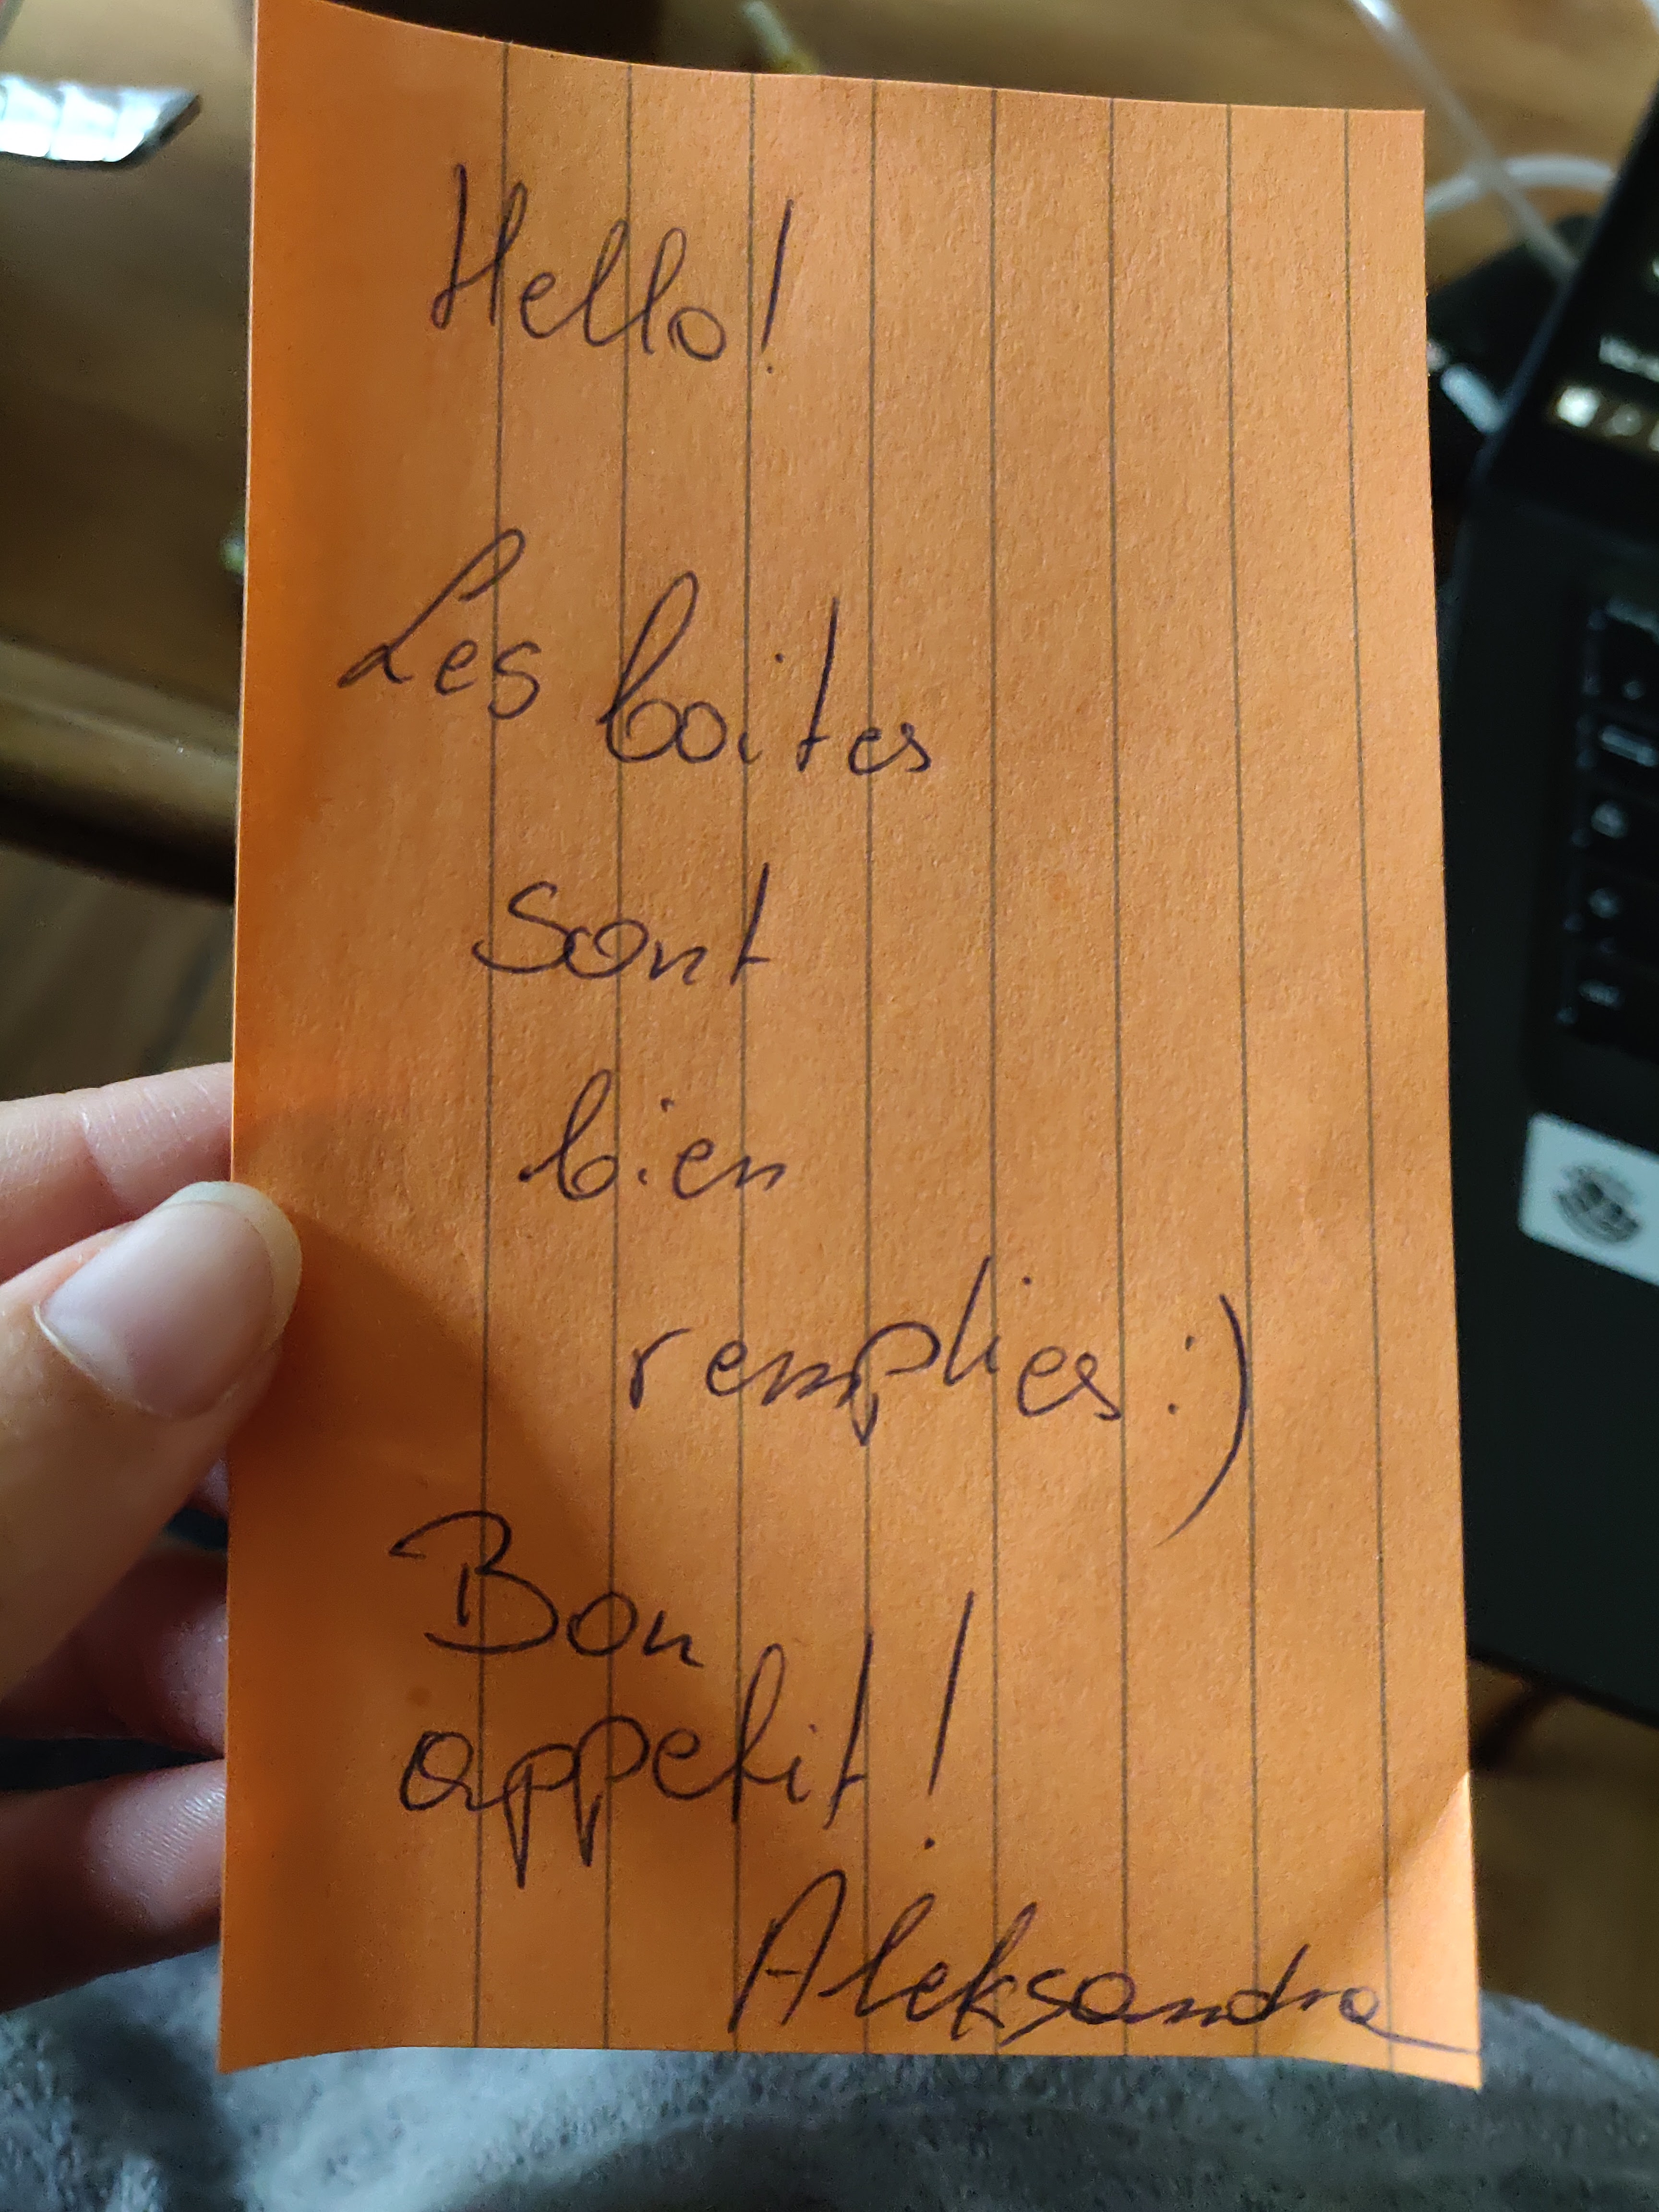 Hello!
Les boites
sont
bien
remplies :)
Bon
appetit!
Aleksandra